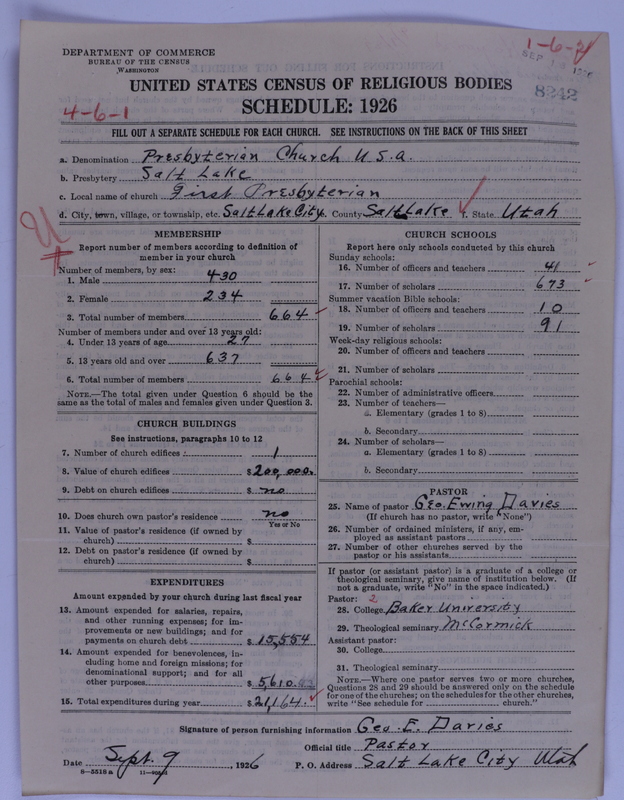 DEPARTMENT OF COMMERCE
BUREAU OF THE CENSUS
WASHINGTON
1-6-2
SEP 1926
8242
UNITED STATES CENSUS OF RELIGIOUS BODIES
SCHEDULE: 1926
4-6-1
FILL OUT A SEPARATE SCHEDULE FOR EACH CHURCH. SEE INSTRUCTIONS ON THE BACK OF THIS SHEET
a. Denomination Presbyterian Church U.S.a.
b. Presbytery Salt Lake
c. Local name of church First Presbyterian
d. City, town, village, or township, etc. Salt Lake City e. County Salt Lake f. State Utah
U
MEMBERSHIP
Report number of members according to definition of member in your church
Number of members, by sex:
1. Male 430
2. Female 234
3. Total number of members 664
Number of members under and over 13 years old:
4. Under 13 years of age 27
5. 13 years old and over 637
6. Total number of members 664
NOTE.—The total given under Question 6 should be the
same as the total of males and females given under Question 3.
CHURCH BUILDINGS
See instructions, paragraphs 10 to 12
7. Number of church edifices 1
8. Value of church edifices $200,000.
9. Debt on church edifices $ no
10. Does church own pastor's residence no
Yes or No
11. Value of pastor's residence (if owned by
church) $
12. Debt on pastor's residence (if owned by
church) $
EXPENDITURES
Amount expended by your church during last fiscal year
13. Amount expended for salaries, repairs,
and other running expenses; for im-
provements or new buildings; and for
payments on church debt $ 15,554
14. Amount expended for benevolences, in-
cluding home and foreign missions; for
denominational support; and for all
other purposes $ 5,610.
15. Total expenditures during year $21,164.
CHURCH SCHOOLS
Report here only schools conducted by this church
Sunday schools:
16. Number of officers and teachers 41
17. Number of scholars 673
Summer vacation Bible schools:
18. Number of officers and teachers 10
19. Number of scholars 91
Week-day religious schools:
20. Number of officers and teachers
21. Number of scholars
Parochial schools:
22. Number of administrative officers
23. Number of teachers—
a. Elementary (grades 1 to 8)
b. Secondary
24. Number of scholars—
a. Elementary (grades 1 to 8)
b. Secondary
PASTOR
25. Name of pastor Geo. Ewing Davies
(If church has no pastor, write "None")
26. Number of ordained ministers, if any, em-
ployed as assistant pastors
27. Number of other churches served by the
pastor or his assistants
If pastor (or assistant pastor) is a graduate of a college or
theological seminary, give name of institution below. (If
not a graduate, write "No" in the space indicated.)
Pastor: 2
28. College Baker University
29. Theological seminary McCormick
Assistant pastor:
30. College
31. Theological seminary
NOTE.—Where one pastor serves two or more churches,
Questions 28 and 29 should be answered only on the schedule
for one of the churches; on the schedules for the other churches,
write "See schedule for church."
Signature of person furnishing information Geo. E. Davies
Official title Pastor
Date Sept. 9, 1926 P. O. Address Salt Lake City Utah
8—5518 a